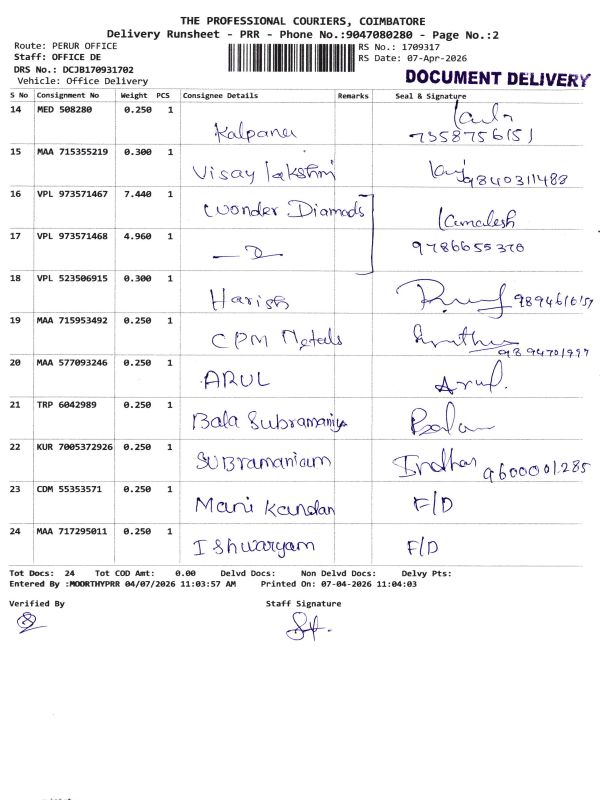 THE PROFESSIONAL COURIERS, COIMBATORE
Delivery Runsheet - PRR - Phone No.:9047080280 - Page No.:2
Route: PERUR OFFICE
RS No.: 1709317
Staff: OFFICE DE
RS Date: 07-Apr-2026
DRS No.: DCJB170931702
Vehicle: Office Delivery
DOCUMENT DELIVERY
S No Consignment No Weight PCS Consignee Details Remarks Seal & Signature
14 MED 508280 0.250 1
Kalpana 7358756151
15 MAA 715355219 0.300 1
Visay lakshmi 9840311488
16 VPL 973571467 7.440 1
Wonder Diamods Kamalesh
17 VPL 973571468 4.960 1
9786655370
18 VPL 523506915 0.300 1
Harish
19 MAA 715953492 0.250 1
CPM Metals
20 MAA 577093246 0.250 1
ARUL Arul.
21 TRP 6042989 0.250 1
Bala Subramaniya
22 KUR 7005372926 0.250 1
SUBramaniam 9600001285
23 CDM 55353571 0.250 1
Mani Kandan F/D
24 MAA 717295011 0.250 1
Ishwaryam F/D
Tot Docs: 24 Tot COD Amt: 0.00 Delvd Docs: Non Delvd Docs: Delvy Pts:
Entered By :MOORTHYPRR 04/07/2026 11:03:57 AM Printed On: 07-04-2026 11:04:03
Verified By Staff Signature